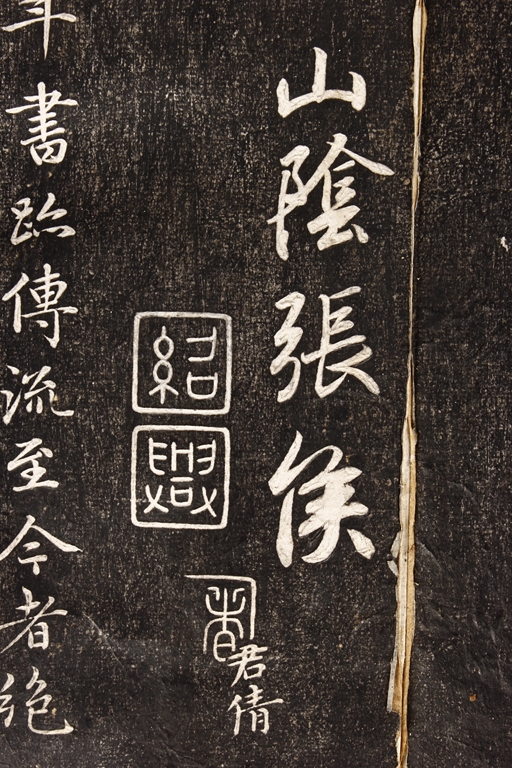 山陰張侯
紹興
君倩
書跡傳流至今者絶